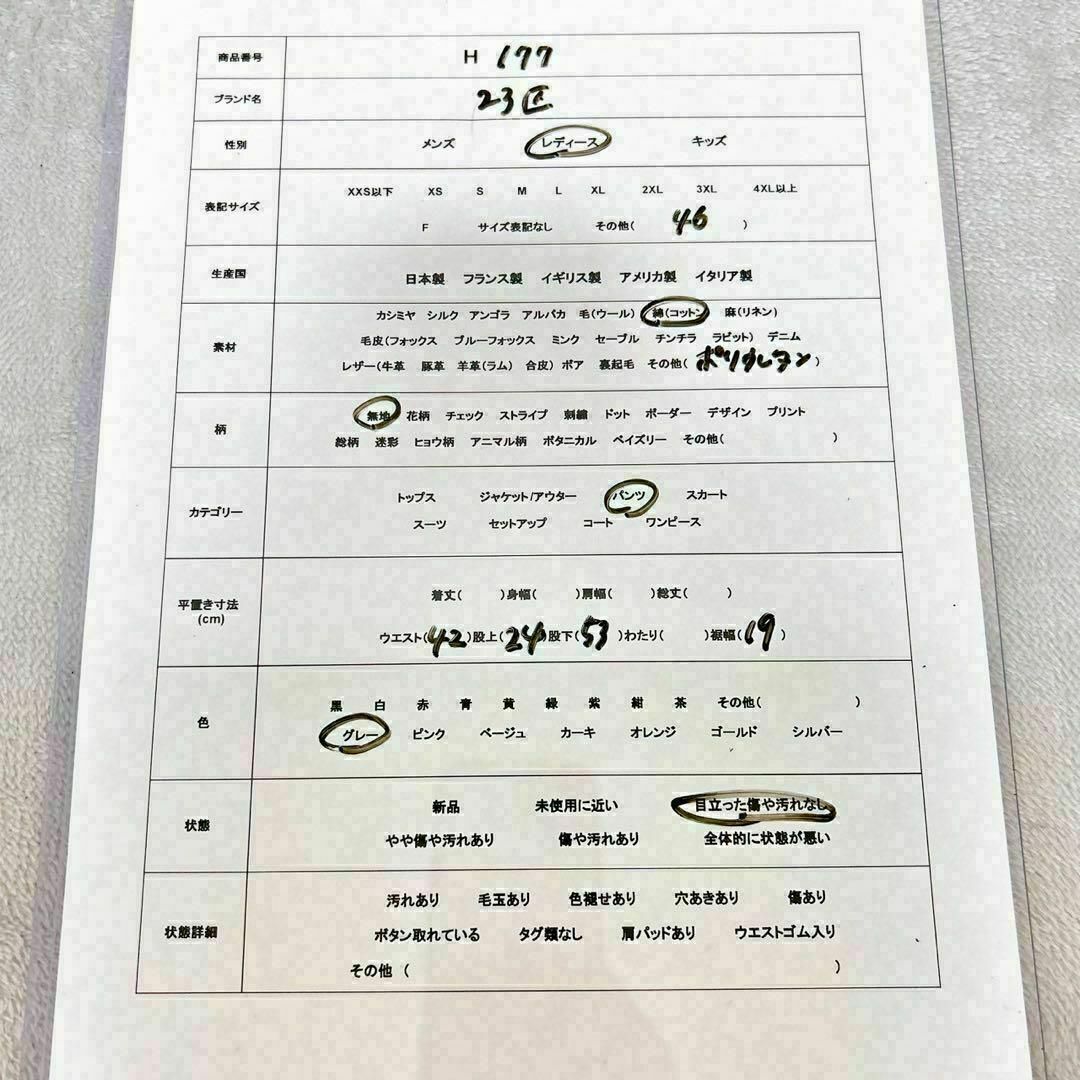 商品番号 H 177
ブランド名 23区
性別 メンズ レディース キッズ
表記サイズ XXS以下 XS S M L XL 2XL 3XL 4XL以上
F サイズ表記なし その他( 46 )
生産国 日本製 フランス製 イギリス製 アメリカ製 イタリア製
素材 カシミヤ シルク アンゴラ アルパカ 毛(ウール) 綿(コットン) 麻(リネン)
毛皮(フォックス ブルーフォックス ミンク セーブル チンチラ ラビット) デニム
レザー(牛革 豚革 羊革(ラム) 合皮) ボア 裏起毛 その他( ポリウレタン )
柄 無地 花柄 チェック ストライプ 刺繍 ドット ボーダー デザイン プリント
総柄 迷彩 ヒョウ柄 アニマル柄 ボタニカル ペイズリー その他( )
カテゴリー トップス ジャケット/アウター パンツ スカート
スーツ セットアップ コート ワンピース
平置き寸法
(cm)
着丈( )身幅( )肩幅( )総丈( )
ウエスト(42)股上(24)股下(53)わたり( )裾幅(19)
色 黒 白 赤 青 黄 緑 紫 紺 茶 その他( )
グレー ピンク ベージュ カーキ オレンジ ゴールド シルバー
状態 新品 未使用に近い 目立った傷や汚れなし
やや傷や汚れあり 傷や汚れあり 全体的に状態が悪い
状態詳細 汚れあり 毛玉あり 色褪せあり 穴あきあり 傷あり
ボタン取れている タグ類なし 肩パッドあり ウエストゴム入り
その他 ( )